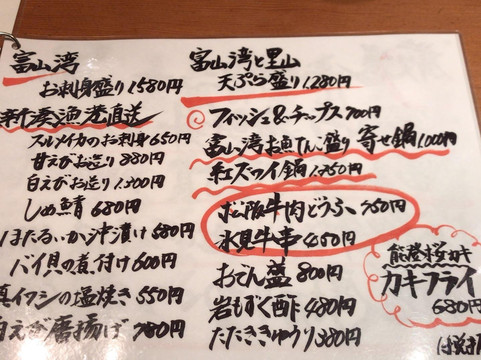 富山湾
お刺身盛り 1580円
新湊漁港直送
スルメイカのお刺身 650円
甘えびお造り 880円
白えびお造り 1,200円
しめ鯖 680円
ほたるいか沖漬け 680円
バイ貝の煮付け 600円
真イワシの塩焼き 550円
白えび唐揚げ 780円
富山湾と里山
天ぷら盛り 1,280円
フィッシュ&チップス 700円
富山湾お魚てんこ盛り 寄せ鍋 1,000円
紅ズワイ鍋 1,250円
松阪牛肉どうふ 750円
氷見牛串 450円
おでん盛 800円
岩もずく酢 480円
たたききゅうり 380円
能登桜カキ
カキフライ
680円